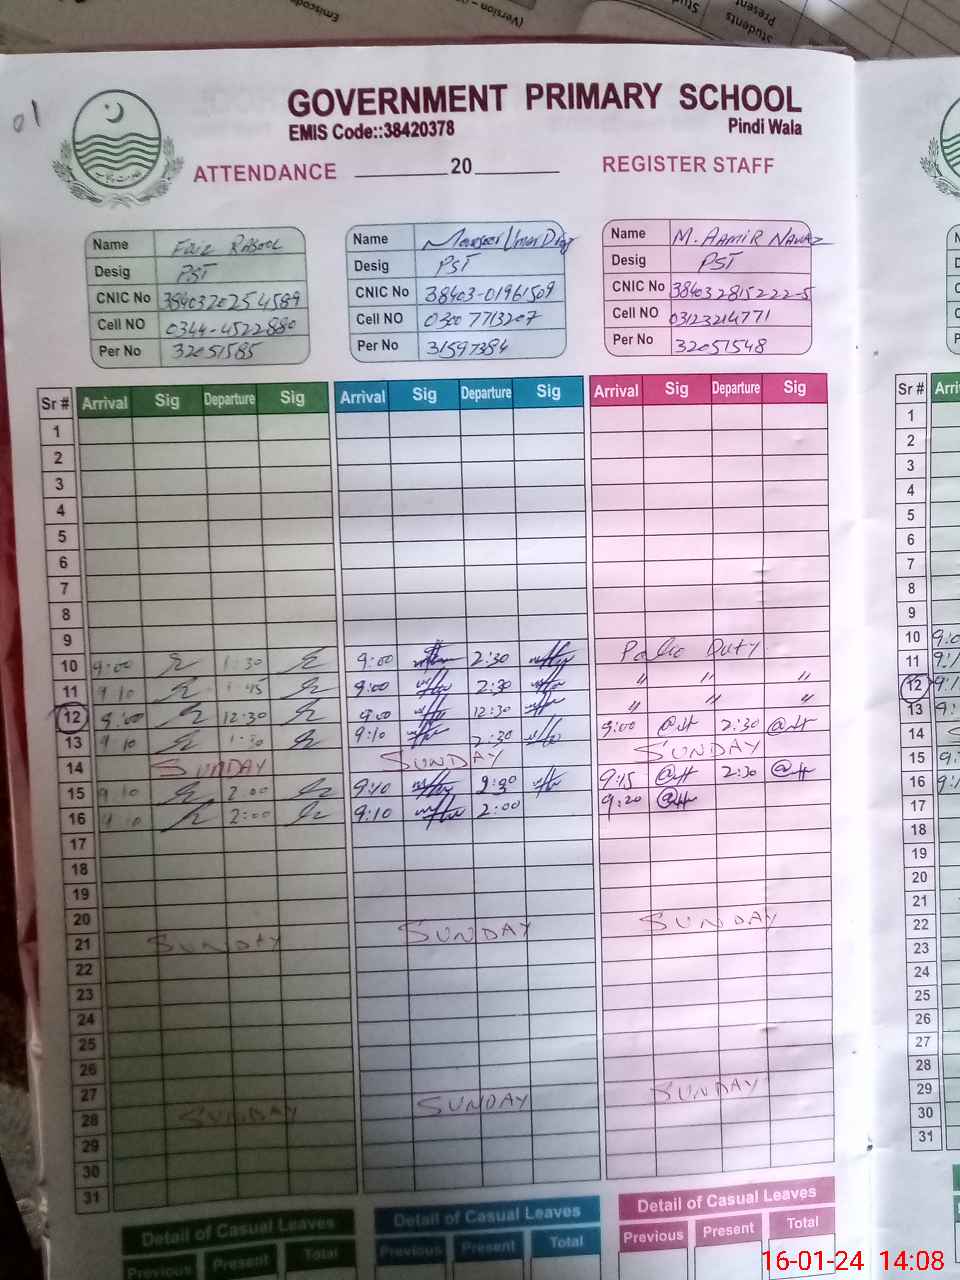 (Version -
Emiscode
Students
Present
Stu
01
GOVERNMENT PRIMARY SCHOOL
EMIS Code::38420378
Pindi Wala
ATTENDANCE ________20________ REGISTER STAFF
Name Faiz Rasool
Desig PST
CNIC No 3840320254589
Cell NO 0344-4522880
Per No 32051585
Name Umar
Desig PST
CNIC No 38403-01961509
Cell NO 0300 7713207
Per No 31597384
Name M. AAMIR NAWAZ
Desig PST
CNIC No 384032815222-5
Cell NO 03123214771
Per No 32051548
Sr # Arrival Sig Departure Sig Arrival Sig Departure Sig Arrival Sig Departure Sig Sr #
1 1
2 2
3 3
4 4
5 5
6 6
7 7
8 8
9 9
10 9:00 1:30 9:00 2:30 Polio Duty 10
11 9:10 1:45 9:00 2:30 " " " 11
12 9:00 12:30 9:00 12:30 " " " 12
13 9:10 1:30 9:10 2:30 9:00 2:30 13
14 SUNDAY SUNDAY SUNDAY 14
15 9:10 2:00 9:10 2:30 9:15 2:30 15
16 9:10 2:00 9:10 2:00 9:20 16
17 17
18 18
19 19
20 20
21 SUNDAY SUNDAY SUNDAY 21
22 22
23 23
24 24
25 25
26 26
27 27
28 SUNDAY SUNDAY SUNDAY
29 29
30 30
31 31
Detail of Casual Leaves Detail of Casual Leaves Detail of Casual Leaves
Previous Present Total Previous Present Total Previous Present Total
16-01-24 14:08